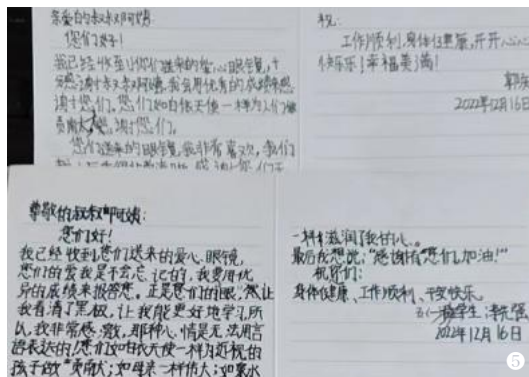 亲爱的叔叔阿姨:
您们好!
我已经收到你们送来的爱心眼镜,十
分感谢叔叔阿姨,我会用优秀的成绩来感
谢您们。您们如白衣天使一样为人们做
贡献,感谢您们。
您们送来的眼镜我非常喜欢,我们
祝:
工作顺利,身体健康,开开心心
快乐!幸福美满!
2022年12月16日
尊敬的叔叔阿姨:
您们好!
我已经收到您们送来的爱心眼镜,
您们的爱我是不会忘记的,我要用优
异的成绩来报答您。正是您们的眼镜让
我看清了黑板,让我能更好地学习,所
以,我非常感激,那种心情是无法用言
语表达的!您们如白衣天使一样为近视的
孩子做"贡献;如母亲一样伟大;如露水
一样滋润了我的心。
最后我想说:"感谢有您们,加油!"
祝你们:
身体健康、工作顺利、平安快乐。
学生:
2022年12月16日
5